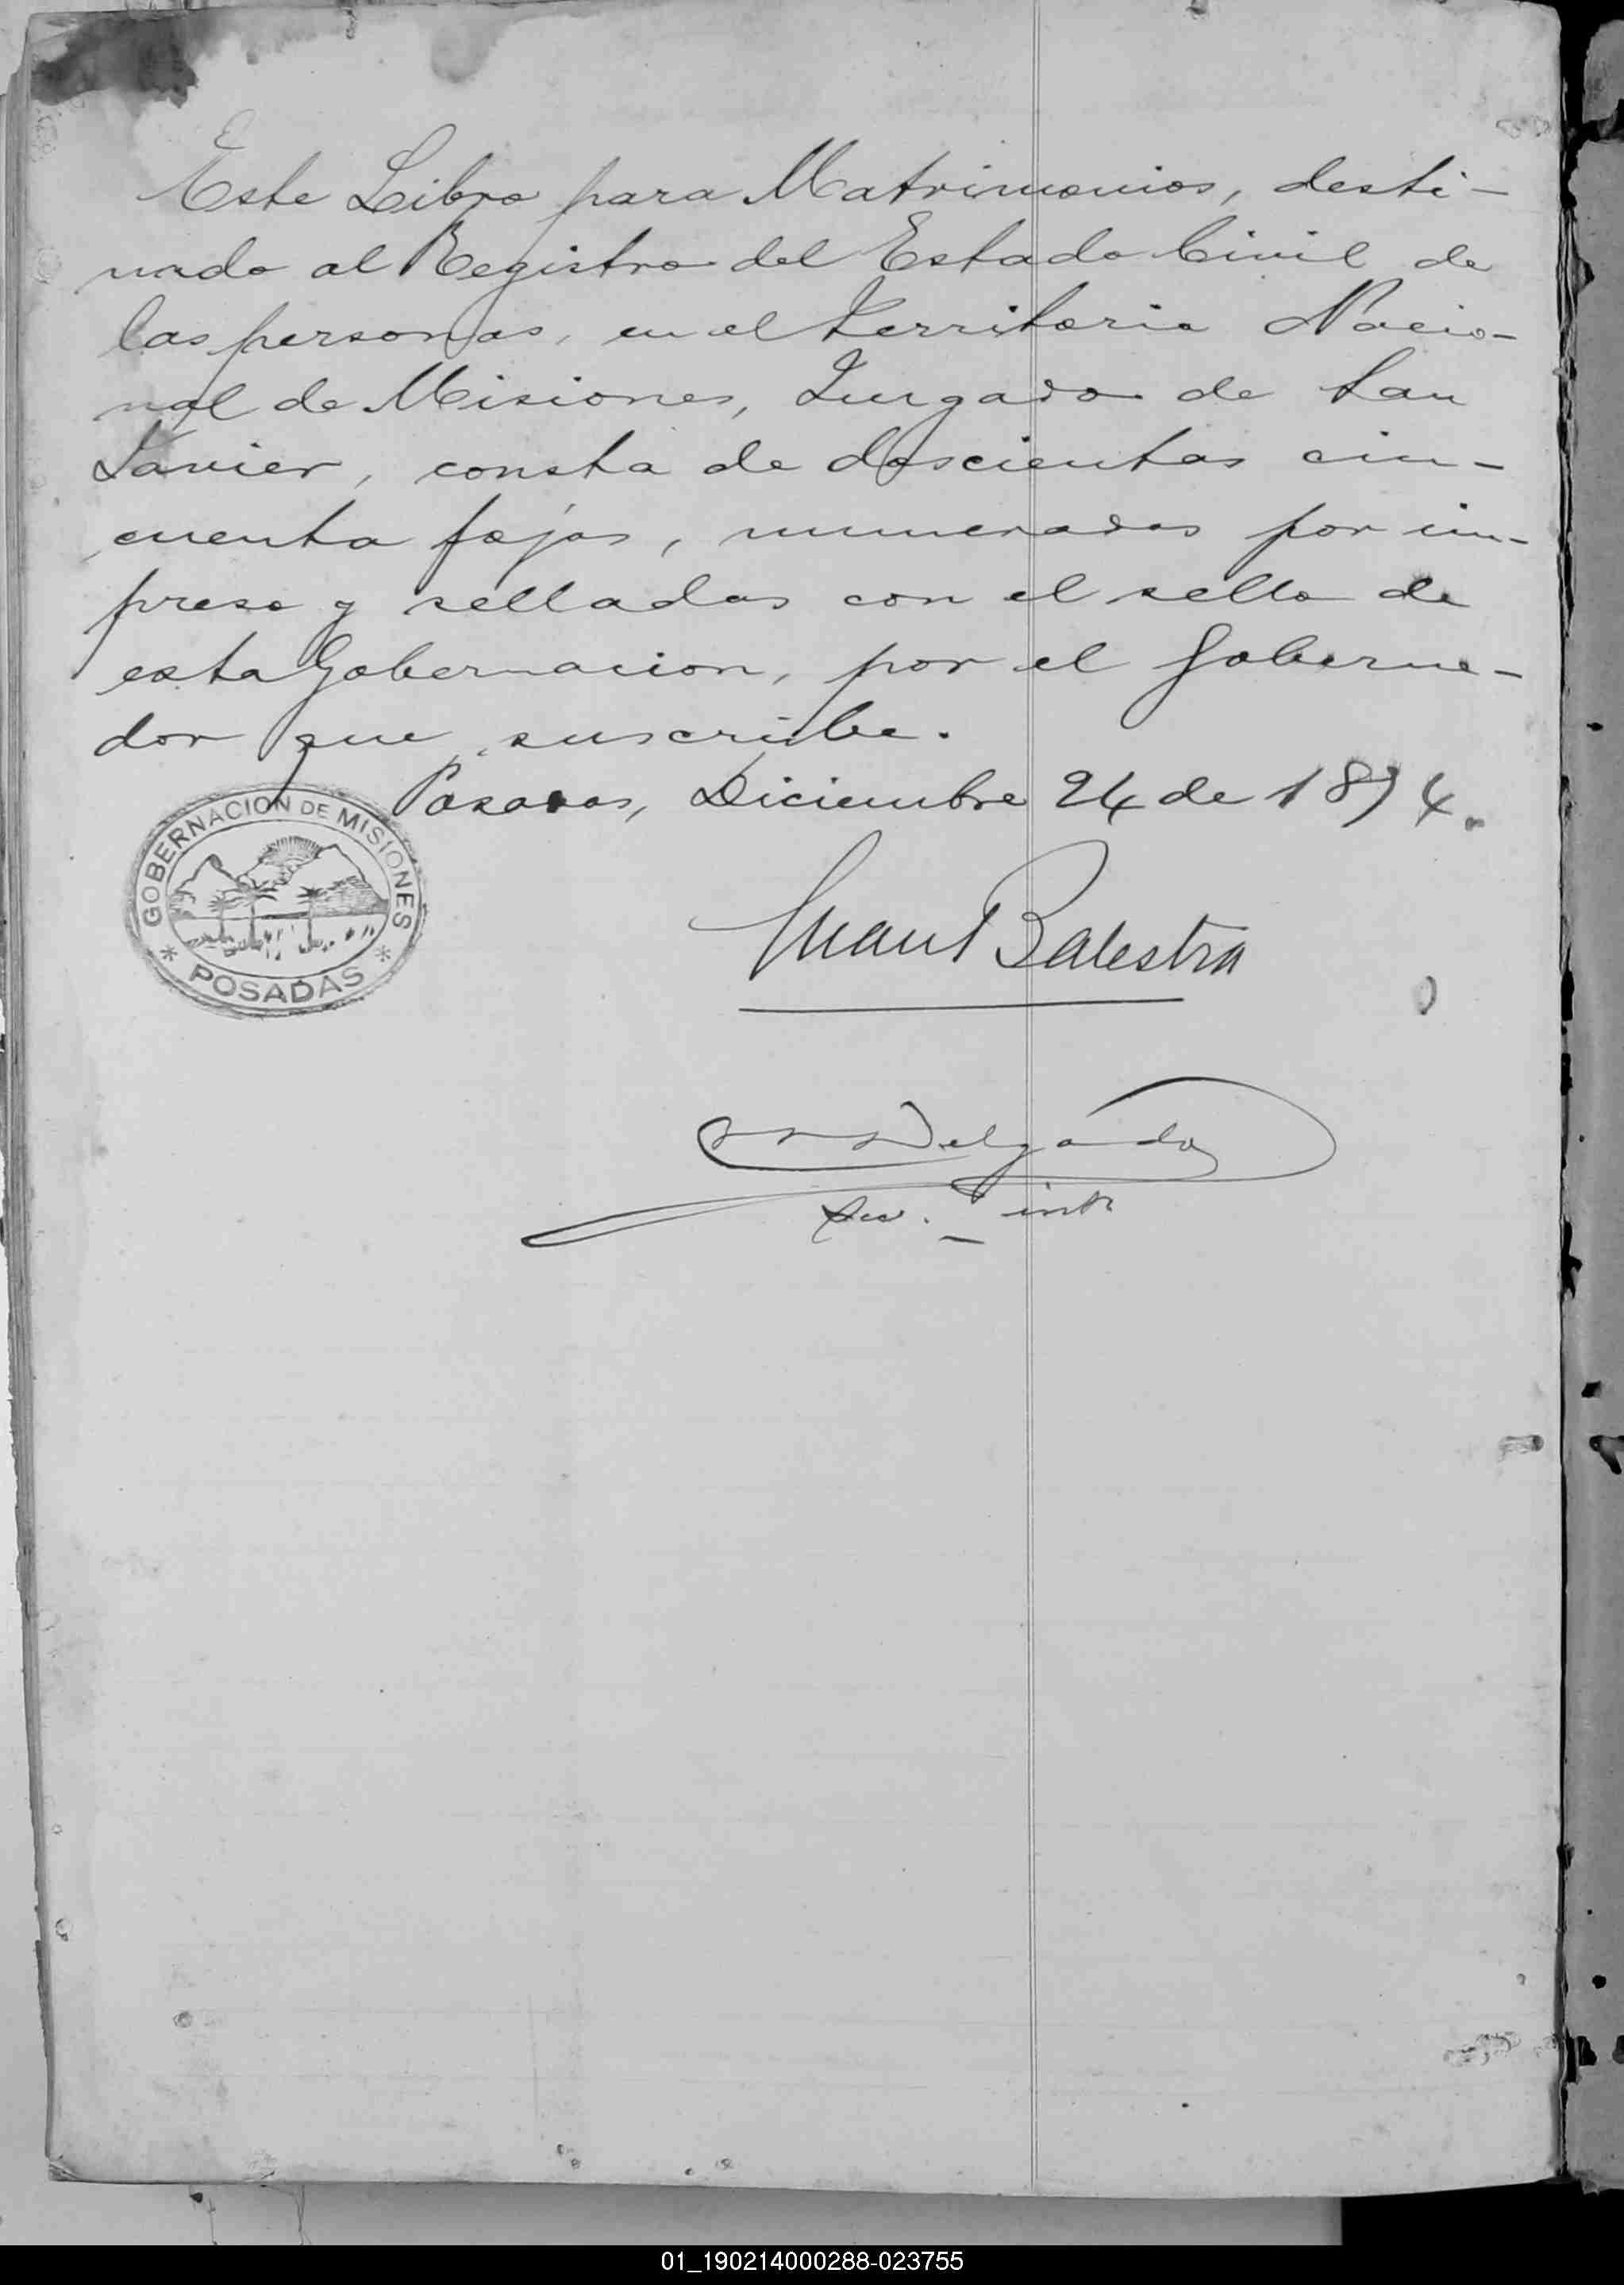 Este Libro para Matrimonios, desti-
nado al Registro del Estado Civil de
las personas, en el Territorio Nacio-
nal de Misiones, Juzgado de San
Javier, consta de doscientas cin-
cuenta fojas, numeradas por im-
preso y selladas con el sello de
esta Gobernacion, por el Goberna-
dor que suscribe.
Posadas, Diciembre 24 de 1894.
GOBERNACION DE MISIONES
* POSADAS *
Juan Balestra
Delgado
Sec. int
01_190214000288-023755